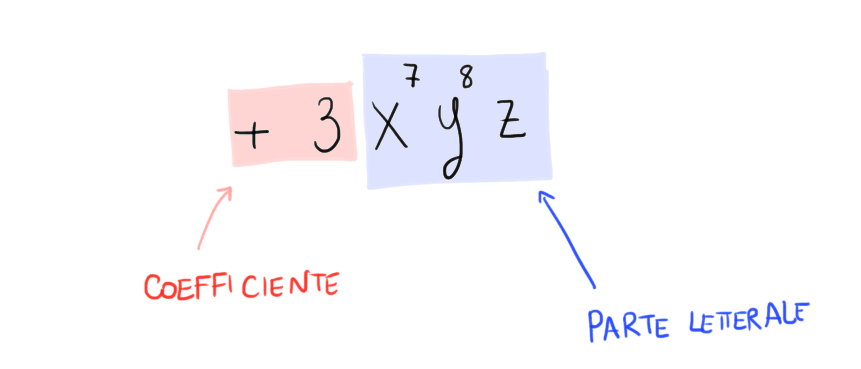 + 3 x⁷ y⁸ z
COEFFICIENTE
PARTE LETTERALE